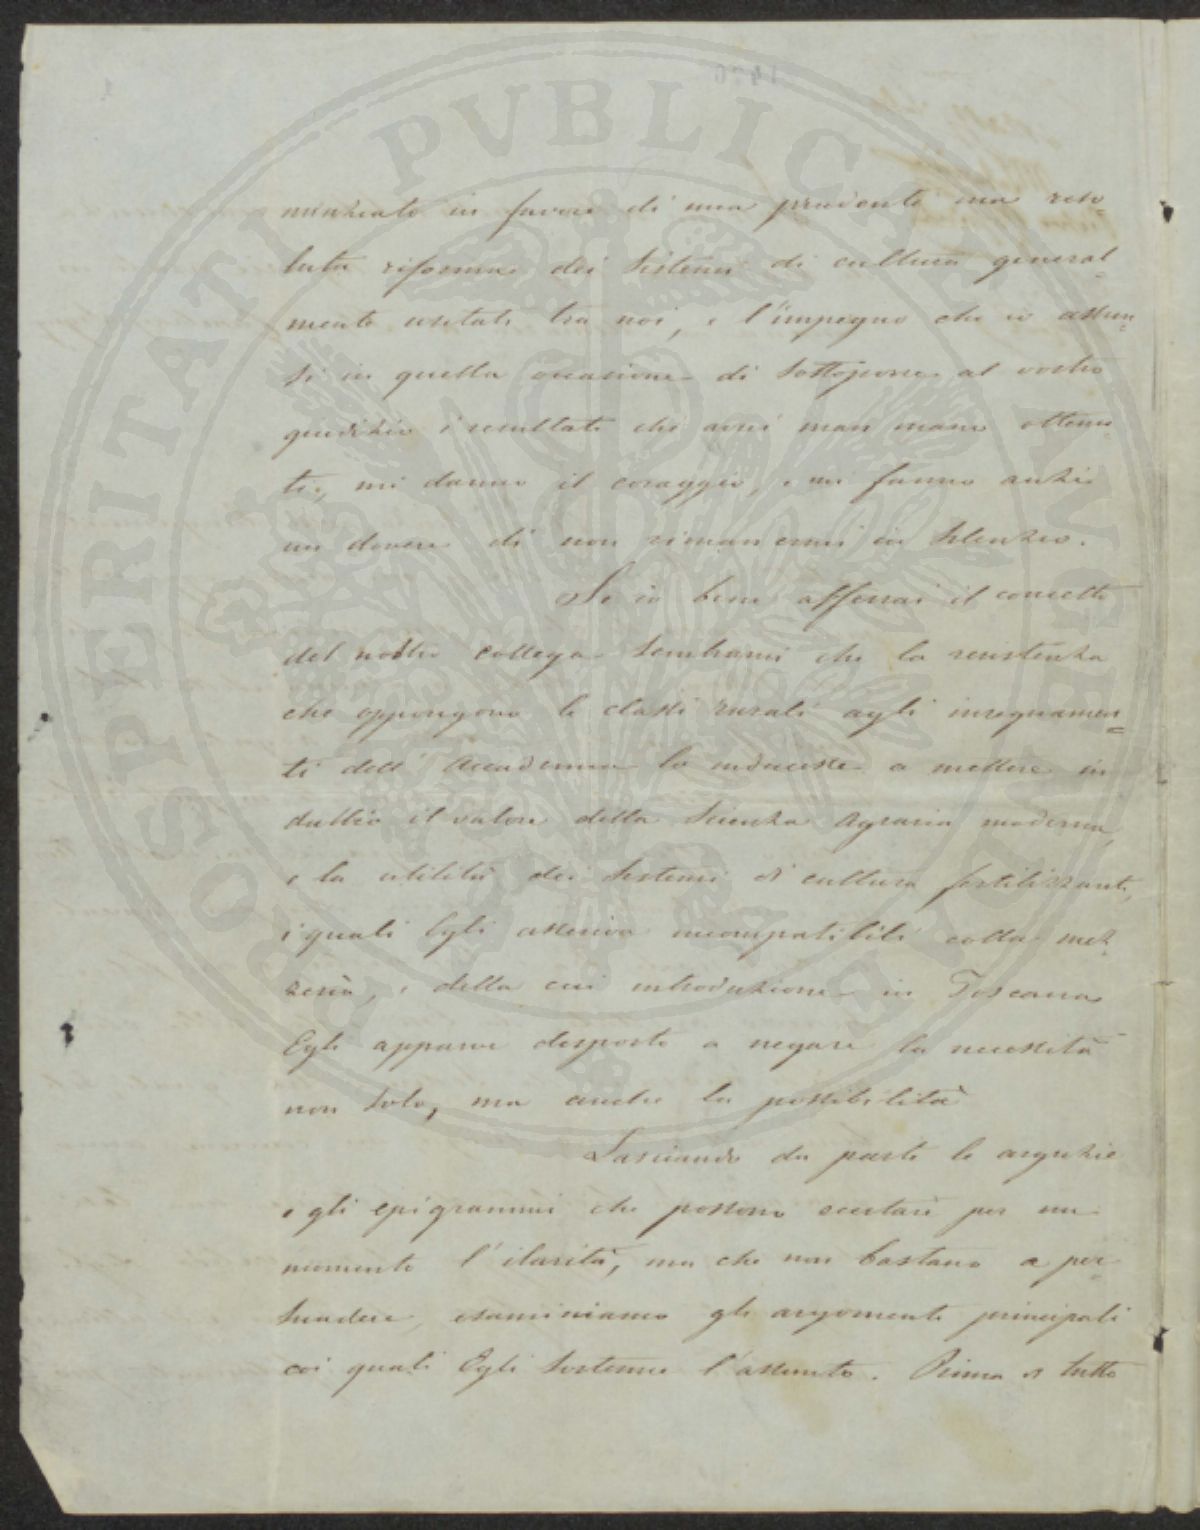 PROSPERITATI PUBLICAE AUGENDAE
nunziato in favore di una prudente ma reso-
luta riforma dei sistemi di cultura general-
mente usitati tra noi, e l'impegno che io assun-
si in quella occasione di sottoporre al vostro
giudizio i resultati che avrei man mano ottenu-
ti, mi danno il coraggio, e mi fanno anzi
un dovere di non rimanermi in silenzio.
Se io bene afferrai il concetto
del nostro collega sembrami che la resistenza
che oppongono le classi rurali agli insegnamen-
ti dell'Accademia lo inducesse a mettere in
dubbio il valore della Scienza Agraria moderna,
e la utilità dei sistemi di cultura fertilizzante,
i quali Egli asseriva incompatibili colla mez-
zeria, e della cui introduzione in Toscana
Egli apparve disposto a negare la necessità
non solo, ma anche la possibilità
Lasciando da parte le arguzie
e gli epigrammi che possono eccitare per un
momento l'ilarità, ma che non bastano a per-
suadere, esaminiamo gli argomenti principali
coi quali Egli sostenne l'assunto. Prima di tutto